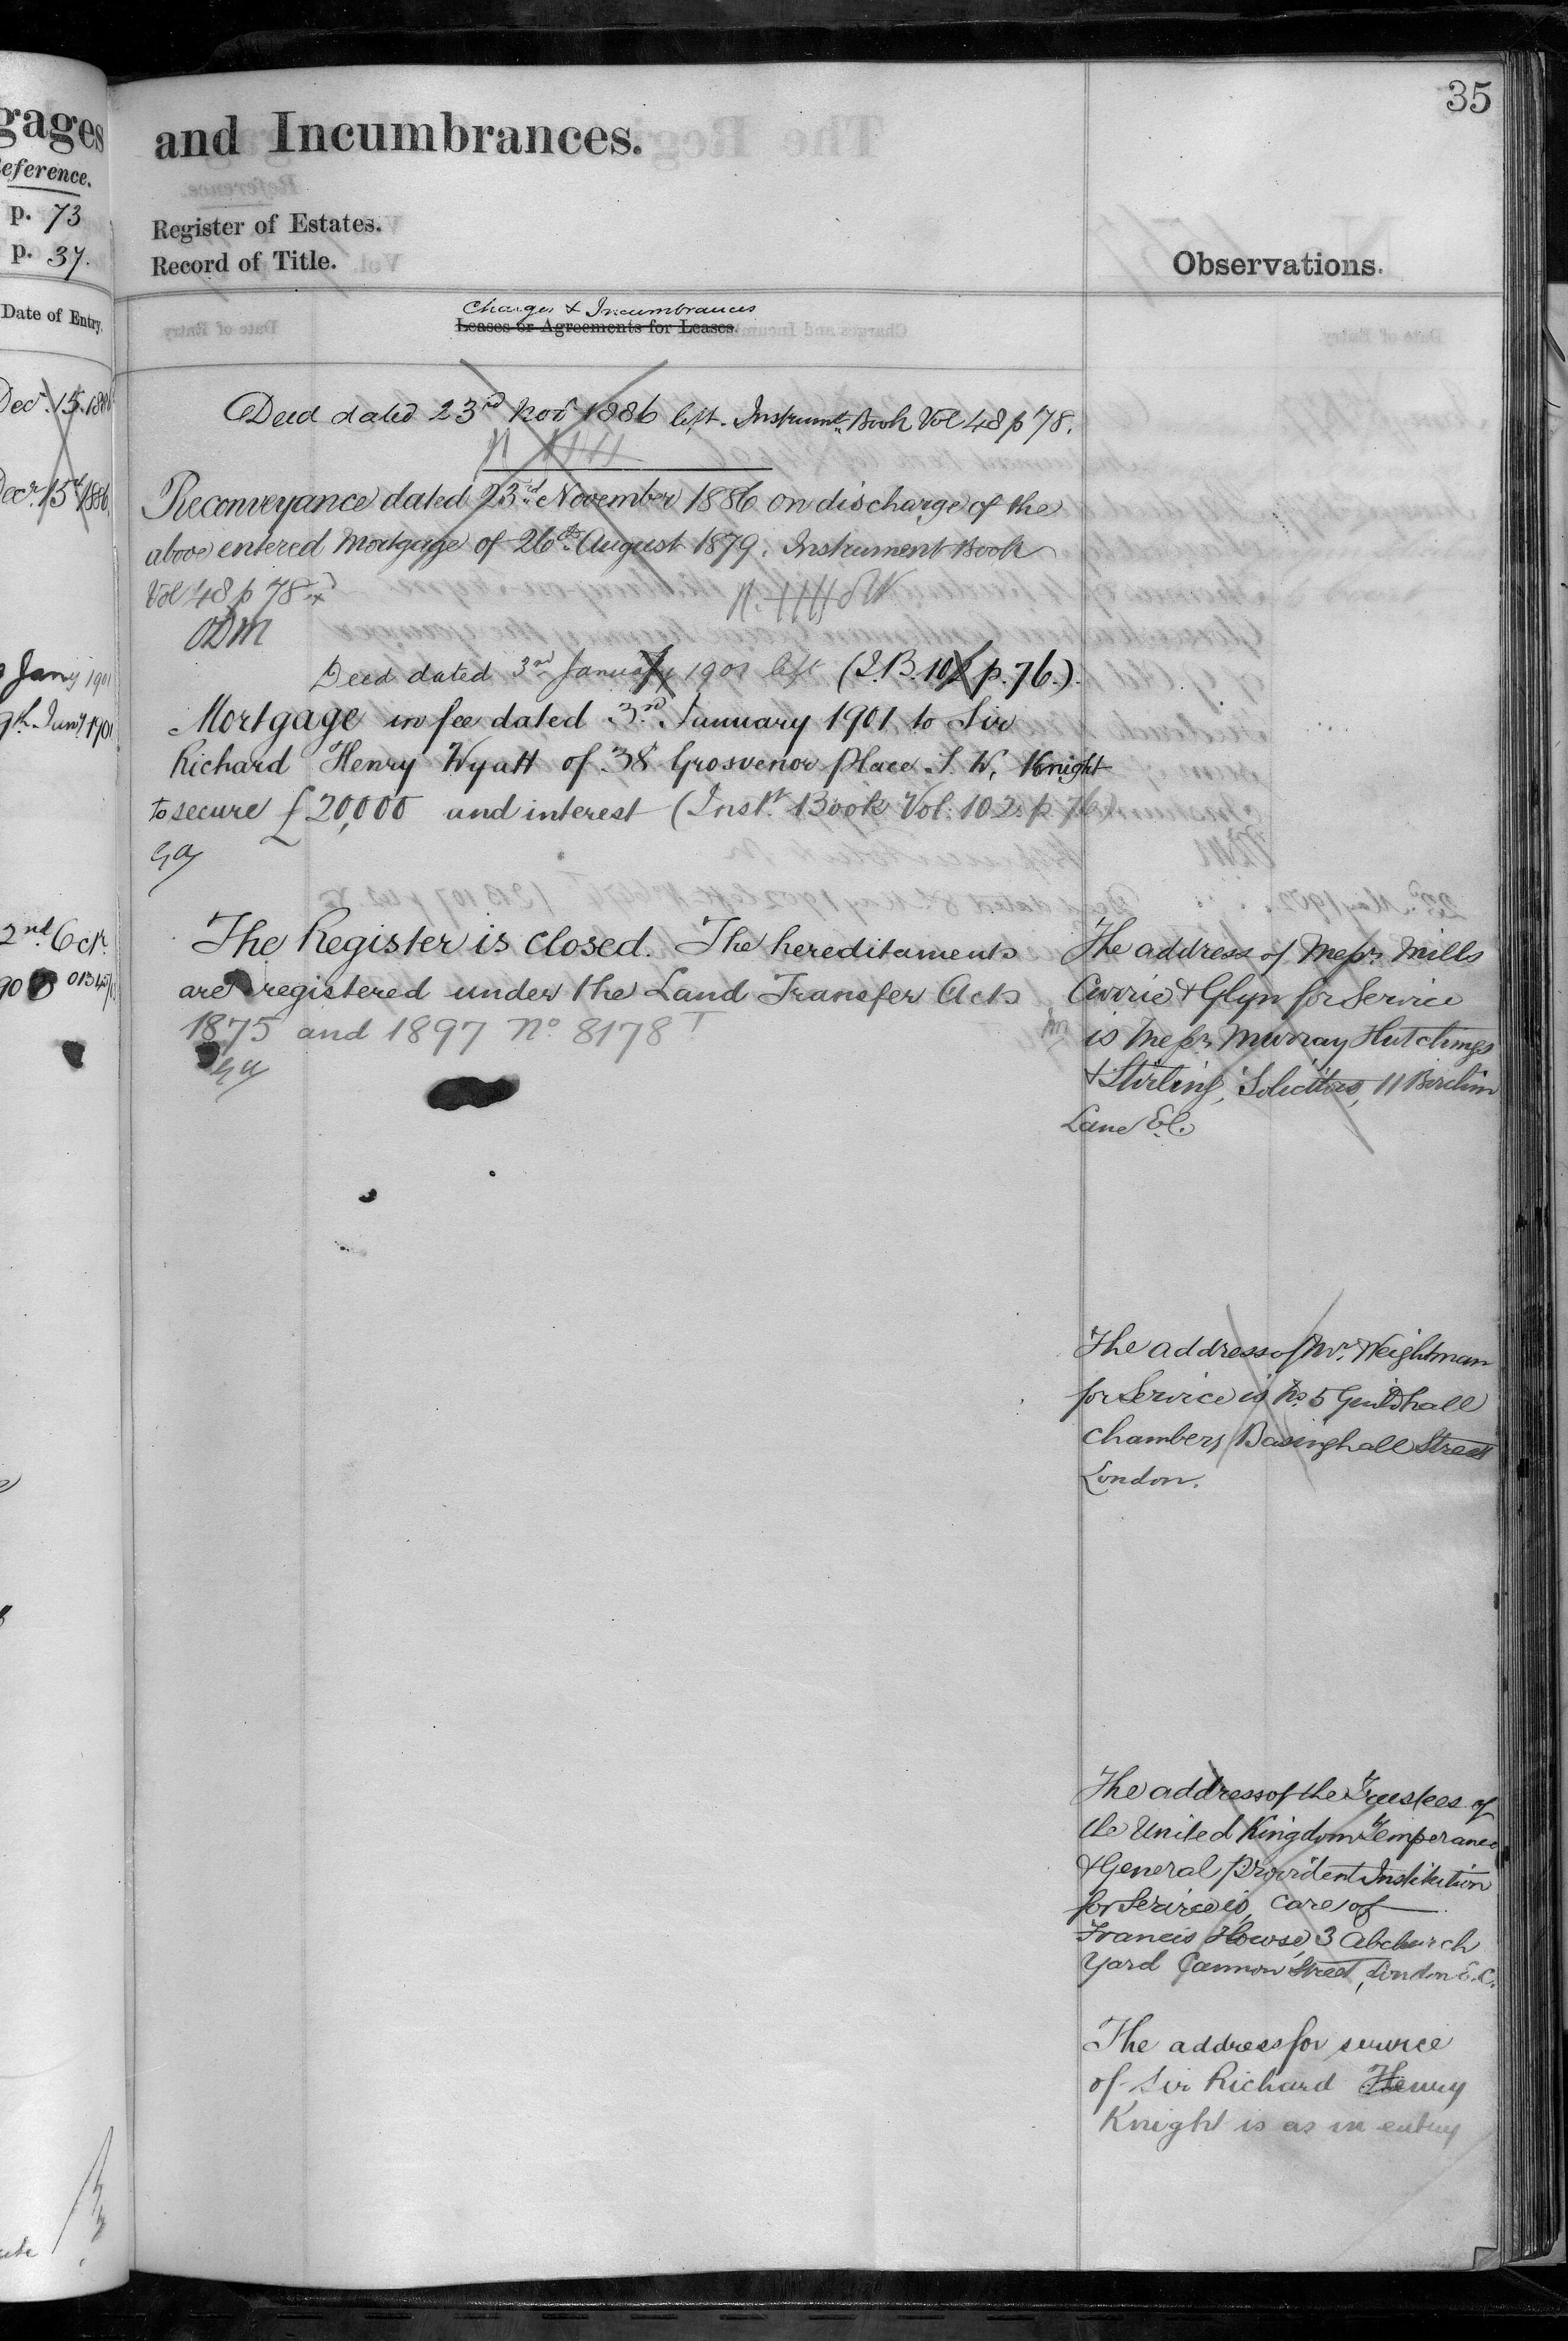 35
gages
and Incumbrances.
Reference.
p. 73
Register of Estates.
p. 37.
Record of Title.
Observations.
Date of Entry.
Charges & Incumbrances
Leases or Agreements for Leases.
Decr. 15. 1886
Deed dated 23rd Novr 1886 left. Instrumt. Book Vol 48 p 78.
Decr. 15th 1886.
Reconveyance dated 23rd November 1886 on discharge of the
above entered Mortgage of 26th August 1879. Instrument Book
Vol 48 p 78
ODM
Jany 1901
Deed dated 3rd January 1901 left (I.B. 102 p. 76.).
9th Jany 1901
Mortgage in fee dated 3rd January 1901 to Sir
Richard Henry Wyatt of 38 Grosvenor place S. W. Knight
to secure £20,000 and interest (Instt. Book Vol. 102. p. 76
2nd Octr.
The Register is closed. The hereditaments
are registered under the Land Transfer Acts
1875 and 1897 No 8178 T
The address of Messrs. Mills
Currie & Glyn for Service
is Messrs. Murray Hutchings
& Stirling, Solicitors, 11 Birchin
Lane E.C.
The address of Mr. Weightman
for Service is No. 5 Guildhall
Chambers Basinghall Street
London.
The address of the Trustees of
the United Kingdom Temperance
& General Provident Institution
for Service is, care of
Francis Howse, 3 Abchurch
Yard Cannon Street, London E.C.
The address for service
of Sir Richard Henry
Knight is as in entry